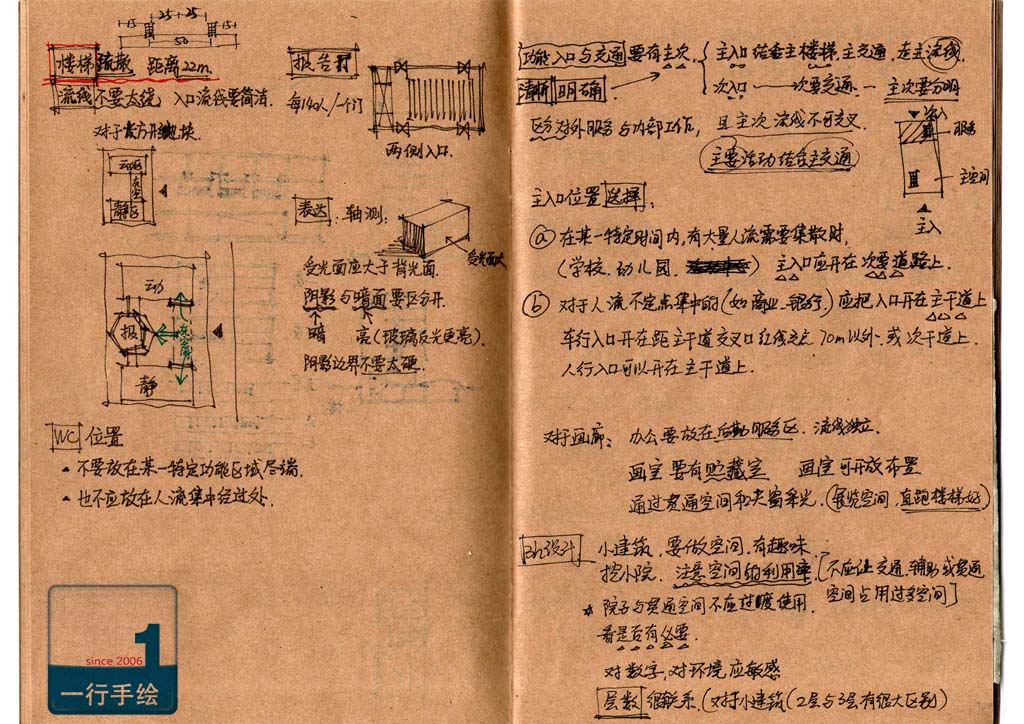 15 25+25 15
50
楼梯 疏散 距离22m
流线 不要太绕 入口流线要简洁
对于长方形地块
动区
静区
动
报
静
WC 位置
不要放在某一特定功能区域尽端.
也不应放在人流集中经过处.
报告厅
每140人/一个门
两侧入口.
表达: 轴测:
受光面大
受光面应大于背光面.
阴影与暗面要区分开.
暗 亮(玻璃反光更亮).
阴影边界不要太硬.
功能入口与交通 要有主次
主入口结合主楼梯.主交通.走主流线.
清晰 明确
次入口——次要交通— 主次要分明
区分对外服务与内部工作, 且主次流线不可交叉.
主要活动结合主交通
次入
服务
主空间
主入
主入口位置选择:
ⓐ 在某一特定时间内,有大量人流需要集散时,
(学校.幼儿园. ) 主入口应开在次要道路上.
ⓑ 对于人流不定点集中的(如商业.银行)应把入口开在主干道上
车行入口开在距主干道交叉口红线交点70m以外.或次干道上.
人行入口可以开在主干道上.
对于画廊: 办公要放在后勤服务区.流线独立.
画室要有贮藏室 画室可开放布置
通过贯通空间和天窗采光.(展览空间,直跑楼梯好)
3h设计 小建筑.要做空间.有趣味.
挖小院.注意空间的利用率.[不应让交通.辅助或贯通
空间占用过多空间]
* 院子与贯通空间不应过度使用.
看是否有必要.
对数字.对环境应敏感
层数 很联系.(对于小建筑(2层与3层有很大区别)
1
since 2006
一行手绘